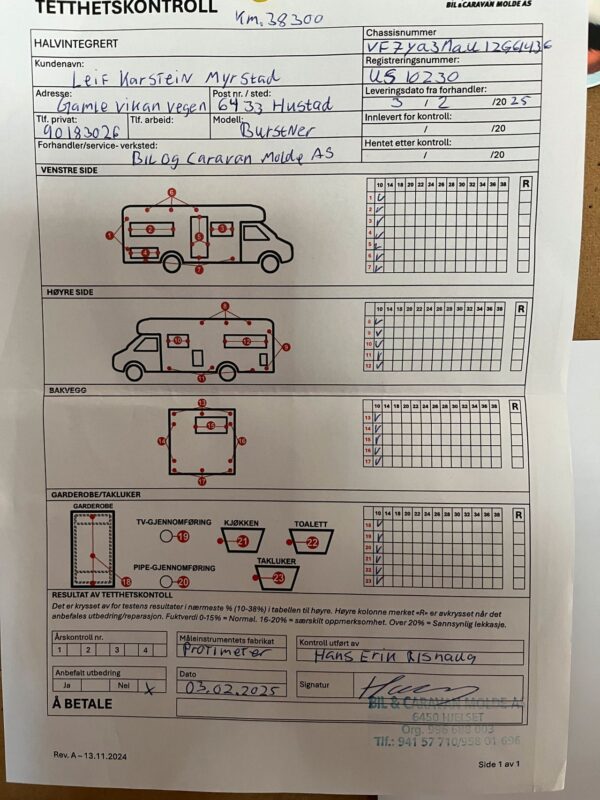 TETTHETSKONTROLL
Km. 38300
BIL & CARAVAN MOLDE AS
HALVINTEGRERT
Chassisnummer
Kundenavn:
Leif Karstein Myrstad
Registreringsnummer:
US 10230
Adresse:
Gamle Vikan vegen
Post nr. / sted:
6433 Hustad
Leveringsdato fra forhandler:
3 / 2 /20 25
Tlf. privat:
90183026
Tlf. arbeid:
Modell:
Burstner
Innlevert for kontroll:
/ /20
Forhandler/service- verksted:
Bil og Caravan Molde AS
Hentet etter kontroll:
/ /20
VENSTRE SIDE
1 2 3 4 5 6 7
10 14 18 20 22 24 26 28 30 32 34 36 38 R
1
2
3
4
5
6
7
HØYRE SIDE
8 9 10 11 12
10 14 18 20 22 24 26 28 30 32 34 36 38 R
8
9
10
11
12
BAKVEGG
13 14 15 16 17
10 14 18 20 22 24 26 28 30 32 34 36 38 R
13
14
15
16
17
GARDEROBE/TAKLUKER
GARDEROBE
18
TV-GJENNOMFØRING
19
KJØKKEN
21
TOALETT
22
PIPE-GJENNOMFØRING
20
TAKLUKER
23
10 14 18 20 22 24 26 28 30 32 34 36 38 R
18
19
20
21
22
23
RESULTAT AV TETTHETSKONTOLL
Det er krysset av for testens resultater i nærmeste % (10-38%) i tabellen til høyre. Høyre kolonne merket «R» er avkrysset når det
anbefales utbedring/reparasjon. Fuktverdi 0-15% = Normal. 16-20% = særskilt oppmerksomhet. Over 20% = Sannsynlig lekkasje.
Årskontroll nr.
1 2 3 4
Måleinstrumentets fabrikat
Protimeter
Kontroll utført av
Hans Erik Risnaug
Anbefalt utbedring
Ja Nei X
Dato
03.02.2025
Signatur
Å BETALE
BIL & CARAVAN MOLDE AS
6450 HJELSET
Tlf.: 941 57 710/958 01 696
Rev. A – 13.11.2024
Side 1 av 1